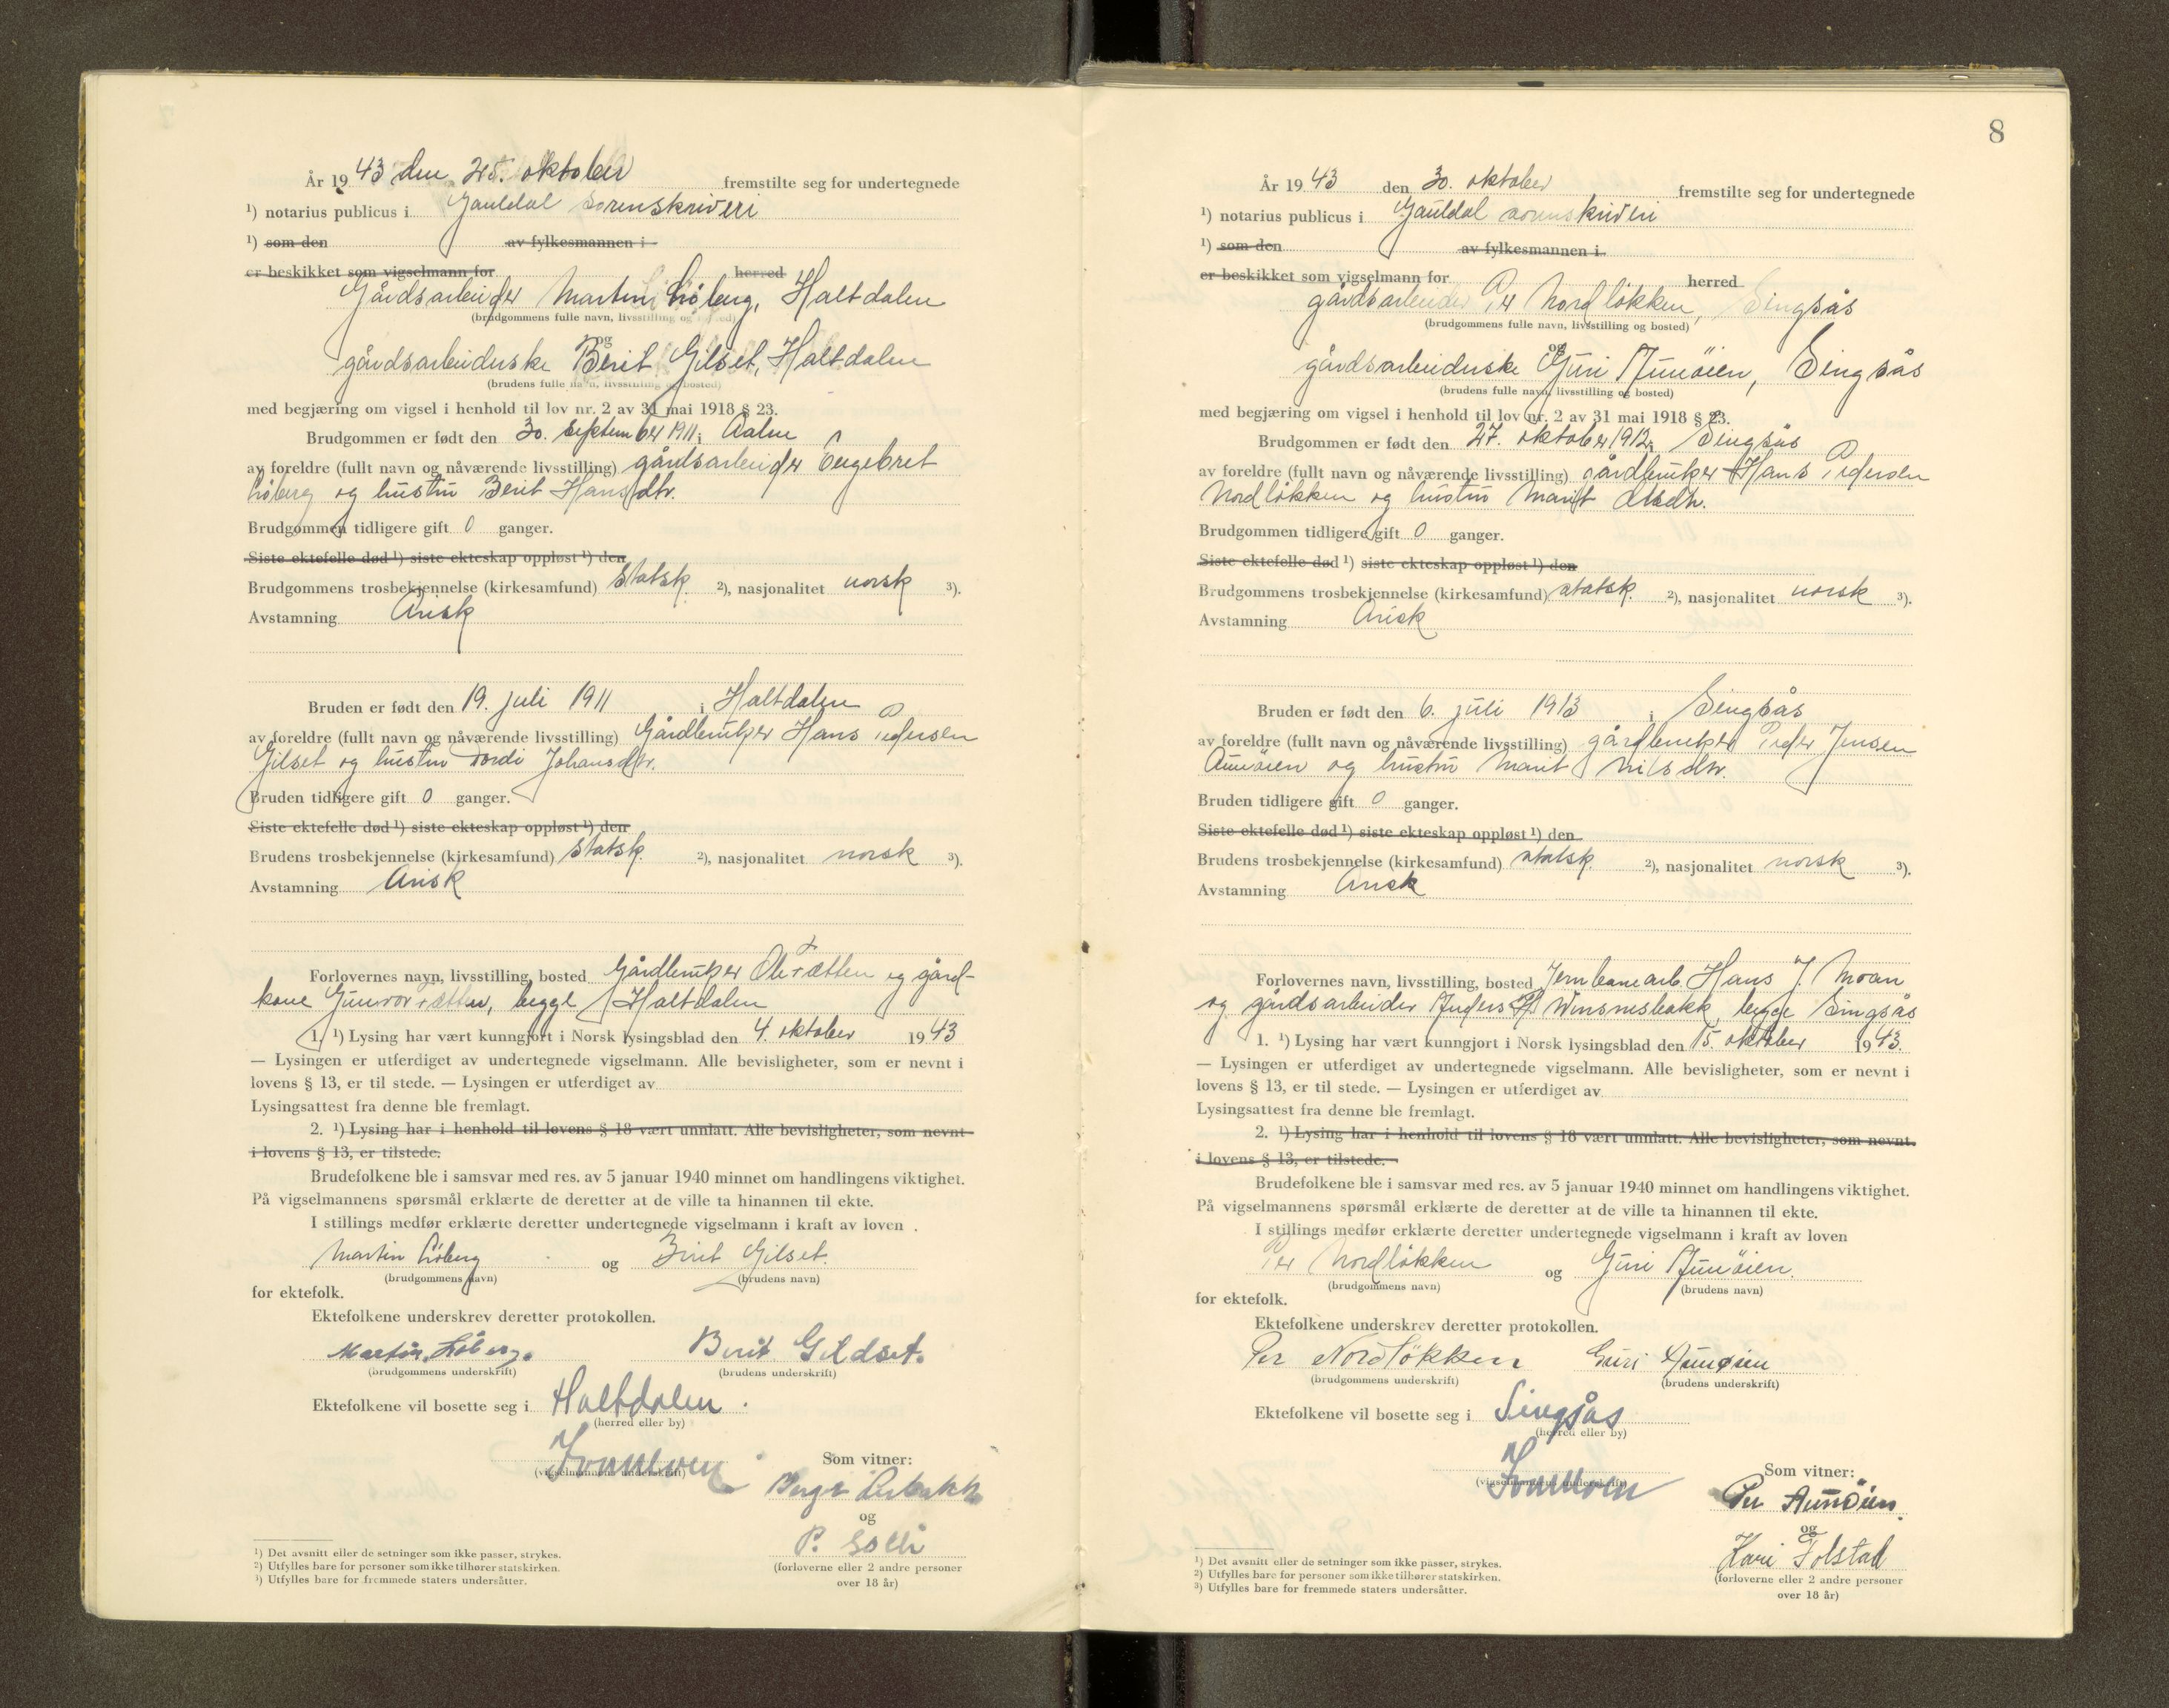 År 1943 den 25. oktober fremstilte seg for undertegnede
¹) notarius publicus i Gauldal sorenskriveri
¹) som den av fylkesmannen i
er beskikket som vigselmann for herred
Gårdsarbeider Martin Löberg, Haltdalen
(brudgommens fulle navn, livsstilling og bosted)
og
gårdsarbeiderske Berit Gilset, Haltdalen
(brudens fulle navn, livsstilling og bosted)
med begjæring om vigsel i henhold til lov nr. 2 av 31 mai 1918 § 23.
Brudgommen er født den 30. september 1911 i Aalen
av foreldre (fullt navn og nåværende livsstilling) gårdsarbeider Engebret
Löberg og hustru Berit Hansdtr.
Brudgommen tidligere gift 0 ganger.
Siste ektefelle død ¹) siste ekteskap oppløst ¹) den
Brudgommens trosbekjennelse (kirkesamfund) statsk. ²), nasjonalitet norsk ³).
Avstamning Arisk
Bruden er født den 19. juli 1911 i Haltdalen
av foreldre (fullt navn og nåværende livsstilling) Gårdbruker Hans Pedersen
Gilset og hustru Dordi Johansdtr.
Bruden tidligere gift 0 ganger.
Siste ektefelle død ¹) siste ekteskap oppløst ¹) den
Brudens trosbekjennelse (kirkesamfund) statsk. ²), nasjonalitet norsk ³).
Avstamning Arisk
Forlovernes navn, livsstilling, bosted Gårdbruker Ole Tætten og gård-
kone Gunvor Tætten, begge Haltdalen
1. ¹) Lysing har vært kunngjort i Norsk lysingsblad den 4. oktober 1943
— Lysingen er utferdiget av undertegnede vigselmann. Alle bevisligheter, som er nevnt i
lovens § 13, er til stede. — Lysingen er utferdiget av
Lysingsattest fra denne ble fremlagt.
2. ¹) Lysing har i henhold til lovens § 18 vært unnlatt. Alle bevisligheter, som nevnt
i lovens § 13, er tilstede.
Brudefolkene ble i samsvar med res. av 5 januar 1940 minnet om handlingens viktighet.
På vigselmannens spørsmål erklærte de deretter at de ville ta hinannen til ekte.
I stillings medfør erklærte deretter undertegnede vigselmann i kraft av loven .
Martin Löberg og Berit Gilset.
(brudgommens navn) (brudens navn)
for ektefolk.
Ektefolkene underskrev deretter protokollen.
Martin Löberg. Berit Gildset.
(brudgommens underskrift) (brudens underskrift)
Ektefolkene vil bosette seg i Haltdalen.
(herred eller by)
(vigselmannens underskrift)
Som vitner:
og
P. Solli
(forloverne eller 2 andre personer
over 18 år)
¹) Det avsnitt eller de setninger som ikke passer, strykes.
²) Utfylles bare for personer som ikke tilhører statskirken.
³) Utfylles bare for fremmede staters undersåtter.
8
År 1943 den 30. oktober fremstilte seg for undertegnede
¹) notarius publicus i Gauldal sorenskriveri
¹) som den av fylkesmannen i
er beskikket som vigselmann for herred
gårdsarbeider Per Nordlökken, Singsås
(brudgommens fulle navn, livsstilling og bosted)
og
gårdsarbeiderske Guri Aunöien, Singsås
(brudens fulle navn, livsstilling og bosted)
med begjæring om vigsel i henhold til lov nr. 2 av 31 mai 1918 § 23.
Brudgommen er født den 27. oktober 1912 i Singsås
av foreldre (fullt navn og nåværende livsstilling) Gårdbruker Hans Pedersen
Nordlökken og hustru Marit Olsdtr.
Brudgommen tidligere gift 0 ganger.
Siste ektefelle død ¹) siste ekteskap oppløst ¹) den
Brudgommens trosbekjennelse (kirkesamfund) statsk. ²), nasjonalitet norsk ³).
Avstamning Arisk
Bruden er født den 6. juli 1913 i Singsås
av foreldre (fullt navn og nåværende livsstilling) gårdbruker Peder Jensen
Aunöien og hustru Marit Nilsdtr.
Bruden tidligere gift 0 ganger.
Siste ektefelle død ¹) siste ekteskap oppløst ¹) den
Brudens trosbekjennelse (kirkesamfund) statsk. ²), nasjonalitet norsk ³).
Avstamning Arisk
Forlovernes navn, livsstilling, bosted Jernbanearb. Hans J. Moan
og gårdsarbeider Anders Winsnesbakk, begge Singsås
1. ¹) Lysing har vært kunngjort i Norsk lysingsblad den 15. oktober 1943.
— Lysingen er utferdiget av undertegnede vigselmann. Alle bevisligheter, som er nevnt i
lovens § 13, er til stede. — Lysingen er utferdiget av
Lysingsattest fra denne ble fremlagt.
2. ¹) Lysing har i henhold til lovens § 18 vært unnlatt. Alle bevisligheter, som nevnt
i lovens § 13, er tilstede.
Brudefolkene ble i samsvar med res. av 5 januar 1940 minnet om handlingens viktighet.
På vigselmannens spørsmål erklærte de deretter at de ville ta hinannen til ekte.
I stillings medfør erklærte deretter undertegnede vigselmann i kraft av loven
Per Nordlökken og Guri Aunöien.
(brudgommens navn) (brudens navn)
for ektefolk.
Ektefolkene underskrev deretter protokollen.
Per Nordlökken Guri Aunøien
(brudgommens underskrift) (brudens underskrift)
Ektefolkene vil bosette seg i Singsås
(herred eller by)
(vigselmannens underskrift)
Som vitner:
Per Aunöien.
og
Kari Folstad
(forloverne eller 2 andre personer
over 18 år)
¹) Det avsnitt eller de setninger som ikke passer, strykes.
²) Utfylles bare for personer som ikke tilhører statskirken.
³) Utfylles bare for fremmede staters undersåtter.